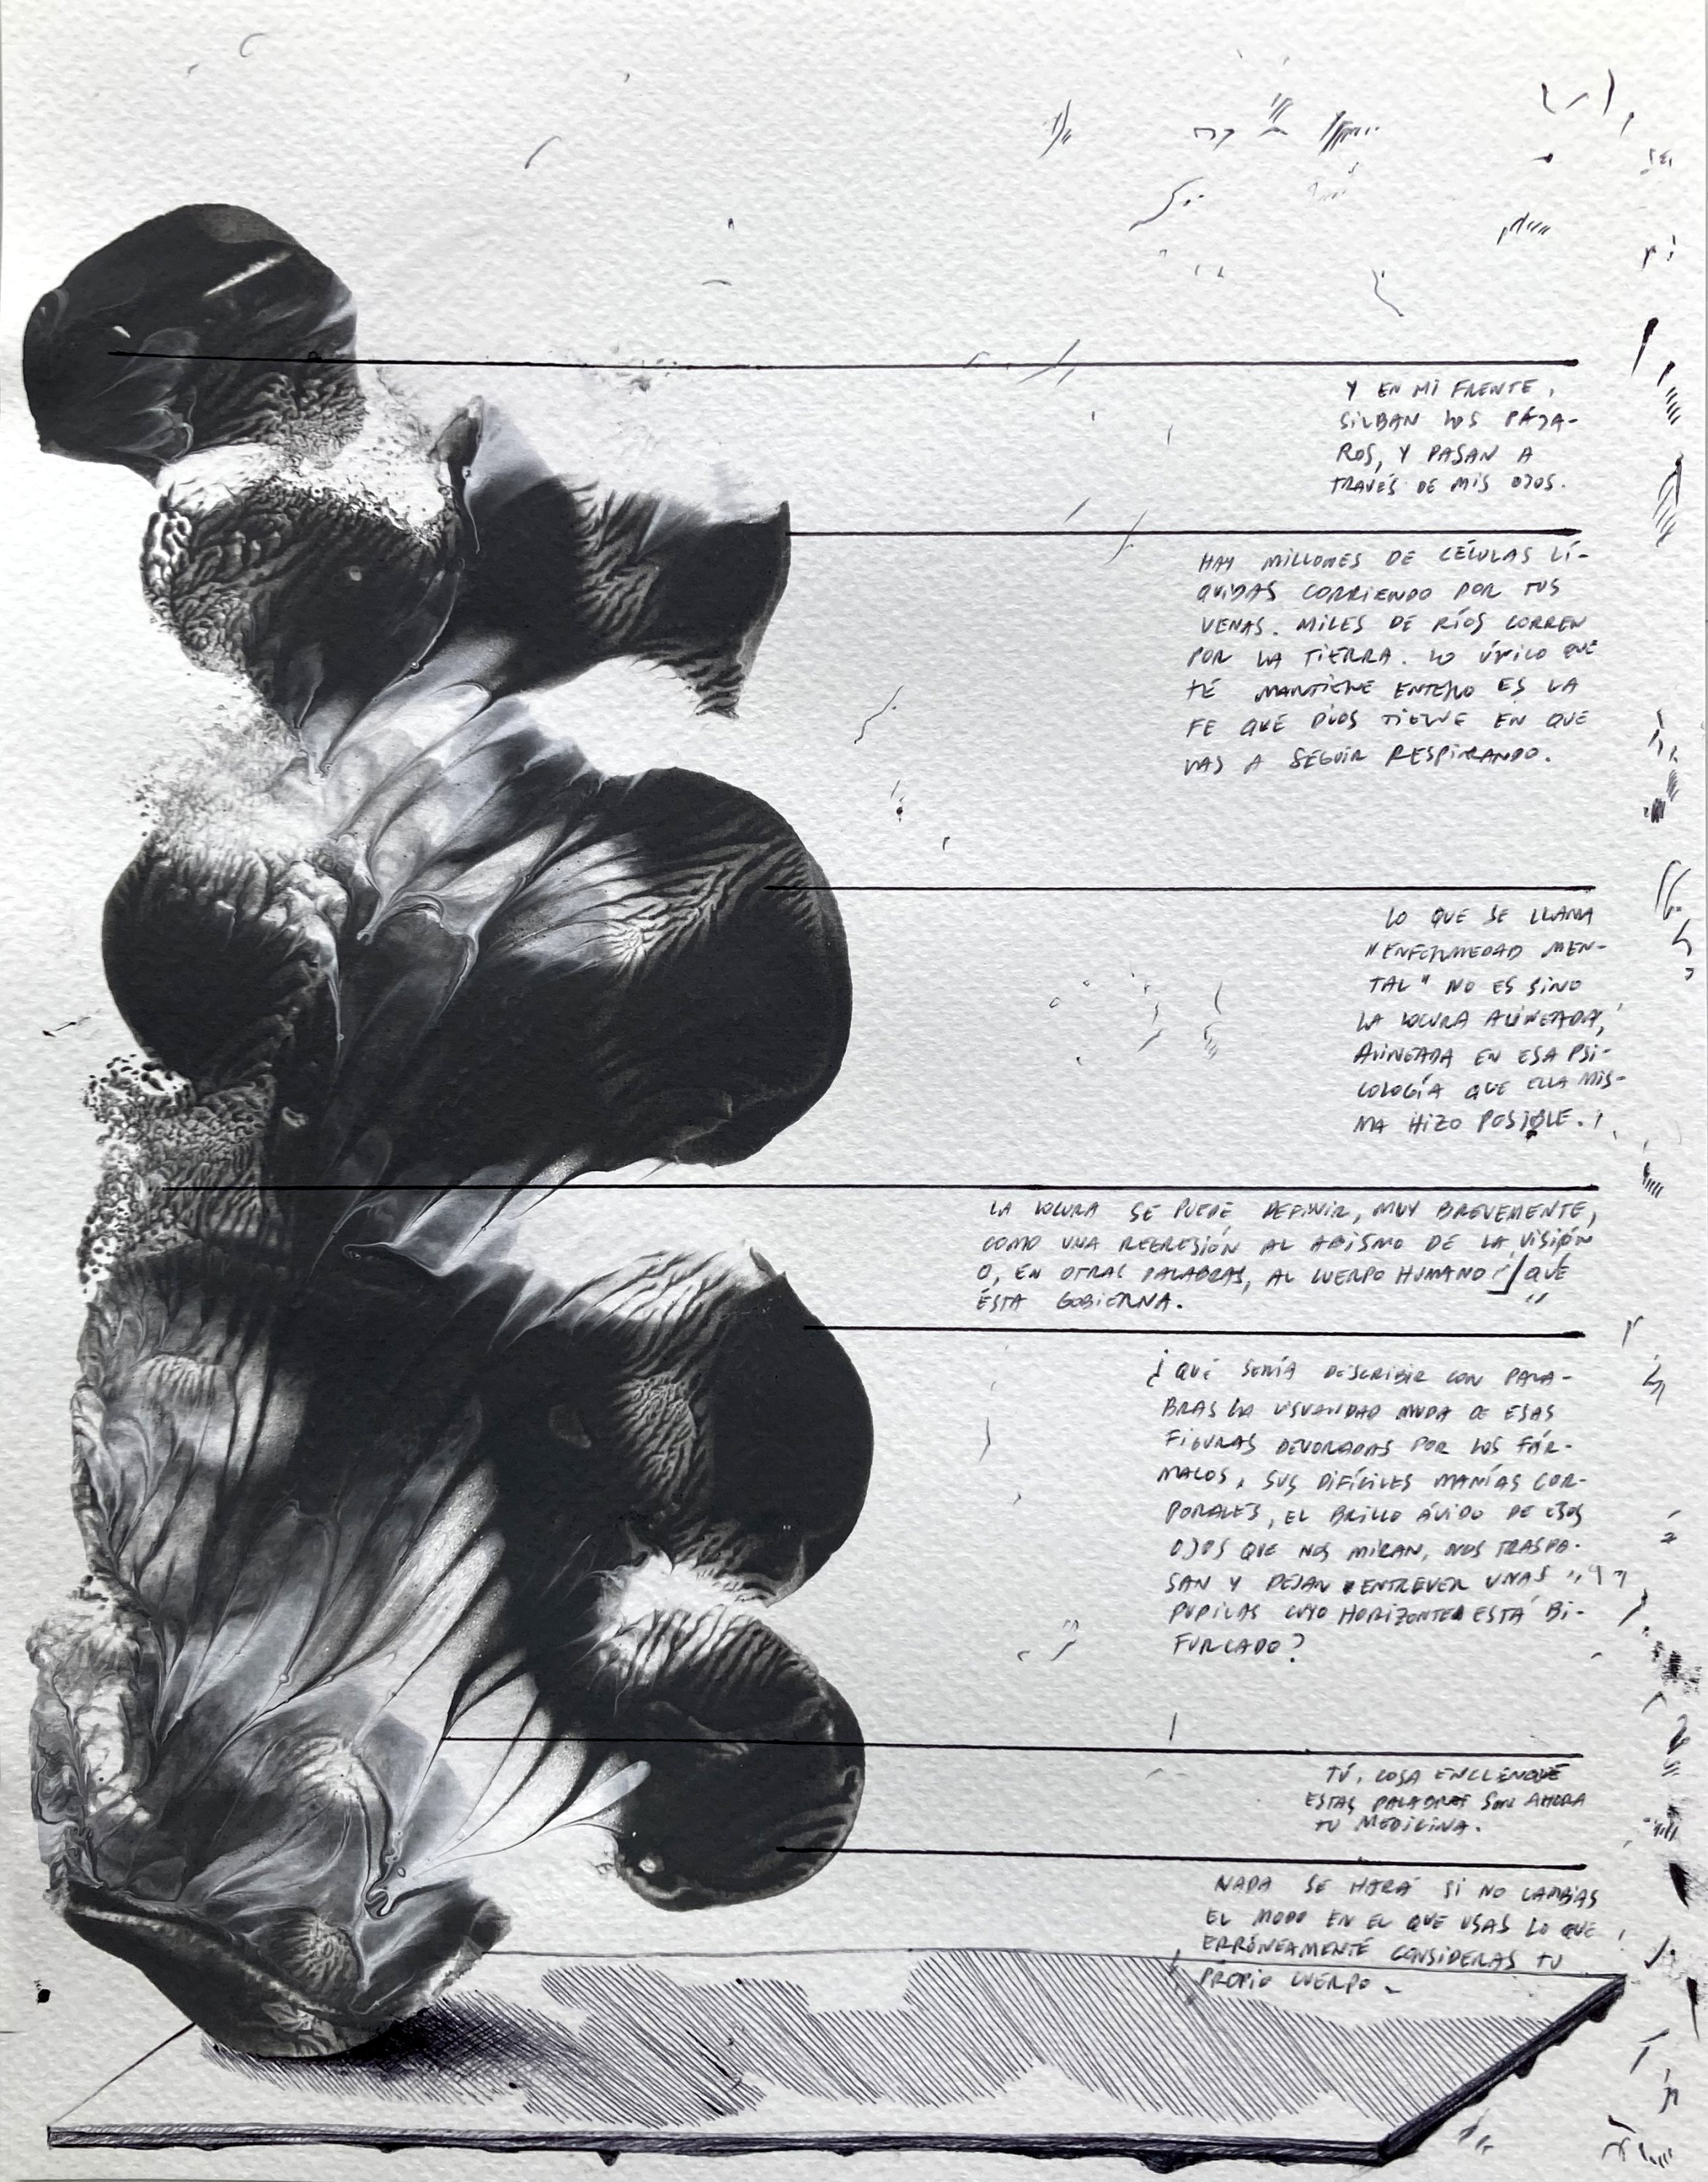 Y EN MI FRENTE,
SILBAN LOS PÁJA-
ROS, Y PASAN A
TRAVÉS DE MIS OJOS.
HAY MILLONES DE CÉLULAS LÍ-
QUIDAS CORRIENDO POR TUS
VENAS. MILES DE RÍOS CORREN
POR LA TIERRA. LO ÚNICO QUE
TE MANTIENE ENTERO ES LA
FE QUE DIOS TIENE EN QUE
VAS A SEGUIR RESPIRANDO.
LO QUE SE LLAMA
"ENFERMEDAD MEN-
TAL" NO ES SINO
LA LOCURA ALINEADA,
ALINEADA EN ESA PSI-
COLOGÍA QUE ELLA MIS-
MA HIZO POSIBLE.
LA LOCURA SE PUEDE DEFINIR, MUY BREVEMENTE,
COMO UNA REGRESIÓN AL ABISMO DE LA VISIÓN
O, EN OTRAS PALABRAS, AL CUERPO HUMANO QUE
ÉSTA GOBIERNA.
¿QUÉ SERÍA DESCRIBIR CON PALA-
BRAS LA VISUALIDAD MUDA DE ESAS
FIGURAS DEVORADAS POR LOS FÁR-
MACOS, SUS DIFÍCILES MANÍAS COR-
PORALES, EL BRILLO ÁVIDO DE ESOS
OJOS QUE NOS MIRAN, NOS TRASPA-
SAN Y DEJAN ENTREVER UNAS
PUPILAS CUYO HORIZONTE ESTÁ BI-
FURCADO?
TÚ, COSA ENCLENQUE
ESTAS PALABRAS SON AHORA
TU MEDICINA.
NADA SE HARÁ SI NO CAMBIAS
EL MODO EN EL QUE USAS LO QUE
ERRÓNEAMENTE CONSIDERAS TU
PROPIO CUERPO.